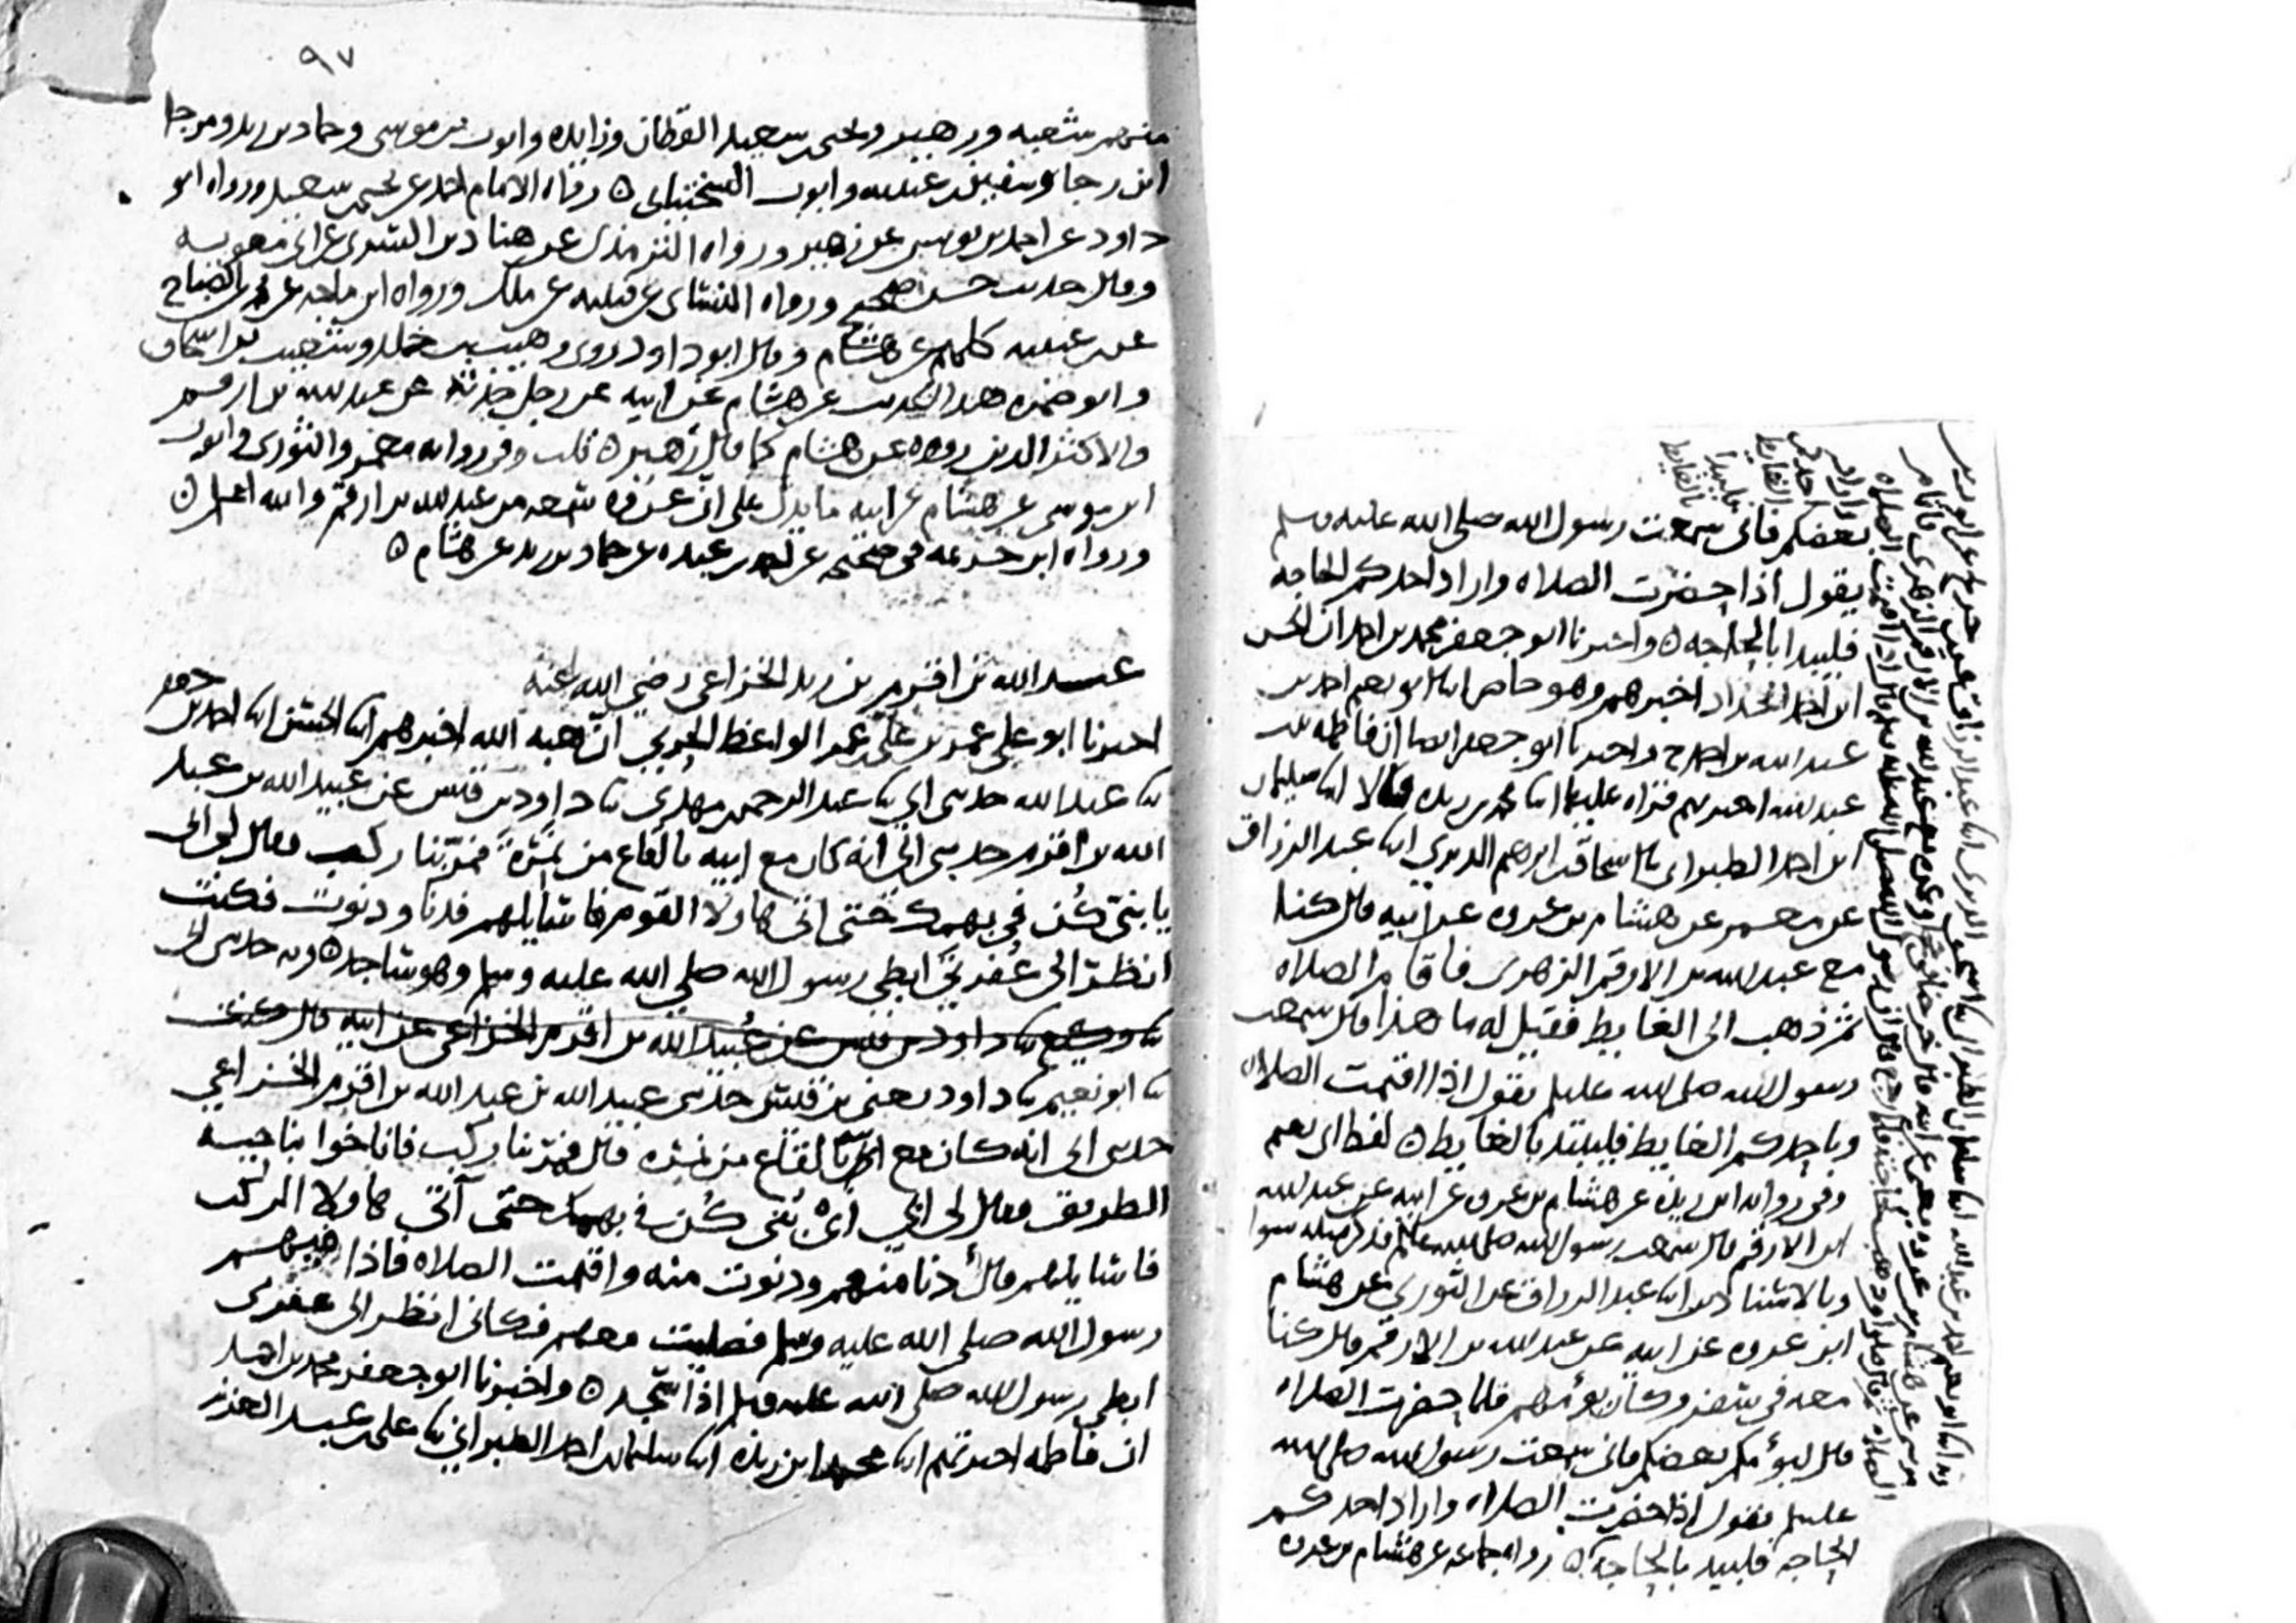 بعضكم فاني سمعت رسول الله صلى الله عليه وسلم
يقول اذا حضرت الصلاه واراد احدكم الحاجه
فليبدا بالحاجه ٥ واخبرنا ابو جعفر محمد بن احمد ان الحسن
ابن احمد الحداد اخبرهم وهو حاضر ابنا ابو نعيم احمد بن
عبد الله بن احمد ح واخبرنا ابو جعفر ايضا ان فاطمه بنت
عبد الله اخبرتهم قراه عليها ابنا محمد بن ريذه قالا ابنا سليمان
ابن احمد الطبراني نا اسحاق بن ابرهيم الدبري ابنا عبد الرزاق
عن معمر عن هشام بن عروه عن ابيه قال كنا
مع عبد الله بن الارقم الزهري فاقام الصلاه
ثم ذهب الى الغايط فقيل له ما هذا قال سمعت
رسول الله صلى الله عليه يقول اذا اقيمت الصلاه
وباحدكم الغايط فليبتد بالغايط ٥ لفظ ابي نعيم
وفي روايه ابن ريذه عن هشام بن عروه عن ابيه عن عبد الله
ابن الارقم قال سمعت رسول الله صلى الله عليه فذكر مثله سوا
وبالاسناد ابنا عبد الرزاق عن الثوري عن هشام
ابن عروه عن ابيه عن عبد الله بن الارقم قال كنا
معه في سفر وكان يؤمهم فلما حضرت الصلاه
قال ليؤمكم بعضكم فاني سمعت رسول الله صلى الله
عليه يقول اذا حضرت الصلاه واراد احدكم
الحاجه فليبد بالحاجه ٥ رواه جماعه عن هشام بن عروه
٩٧
منهم شعبه وزهير ويحيى بن سعيد القطان وزايده وايوب بن موسى وحماد بن زيد ومرجا
ابن رجا وسفيان بن عيينه وايوب السختياني ٥ رواه الامام احمد عن يحيى بن سعيد ورواه ابو
داود عن احمد بن يونس عن زهير ورواه الترمذي عن هناد بن السري عن ابي معويه
وقال حديث حسن صحيح ورواه النسائي عن قتيبه عن ملك ورواه ابن ماجه عن محمد بن الصباح
عن ابن عيينه كلهم عن هشام وقال ابو داود روى وهيب بن خالد وشعيب بن اسحاق
وابو ضمره هذا الحديث عن هشام عن ابيه عن رجل حدثه عن عبد الله بن ارقم
والاكثر الذين رووه عن هشام كما قال زهير ٥ قلت وفي روايه معمر والثوري وايوب
ابن موسى عن هشام عن ابيه ما يدل على ان عروه سمعه من عبد الله بن ارقم والله اعلم ٥
ورواه ابن خزيمه في صحيحه عن احمد بن عبده عن حماد بن زيد عن هشام ٥
عبد الله بن اقرم بن زيد الخزاعي رضي الله عنه
اخبرنا ابو علي عمر بن علي بن عمر الواعظ الحربي ان هبه الله اخبرهم ابنا الحسن ابنا احمد بن جعفر
نا عبد الله حدثني ابي نا عبد الرحمن بن مهدي نا داود بن قيس عن عبيد الله بن عبد
الله بن اقرم حدثني ابي انه كان مع ابيه بالقاع من نمره فمر بنا ركب فقال لي ابي
يا بني كن في بهمك حتى اتي هاولا القوم فاسايلهم فدنا ودنوت فكنت
انظر الى عفرتي ابطي رسول الله صلى الله عليه وسلم وهو ساجد ٥ وبه حدثني ابي
نا وكيع نا داود بن قيس عن عبيد الله بن اقرم الخزاعي عن ابيه قال
نا ابو نعيم نا داود يعني بن قيس حدثني عبيد الله بن عبد الله بن اقرم الخزاعي
حدثني ابي انه كان مع ابيه بالقاع من نمره قال فمر بنا ركب فاناخوا بناحيه
الطريق فقال لي ابي اي بني كن في بهمك حتى آتي هاولا الركب
فاسايلهم قال دنا منهم ودنوت منه واقيمت الصلاه فاذا فيهم
رسول الله صلى الله عليه وسلم فصليت معهم فكاني انظر الى عفرتي
ابطي رسول الله صلى الله عليه وسلم اذا سجد ٥ واخبرنا ابو جعفر محمد بن احمد
ان فاطمه اخبرتهم ابنا محمد ابن ريذه ابنا سليمان بن احمد الطبراني نا علي بن عبد العزيز